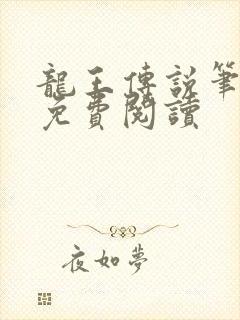 龍王傳說筆
免費閱讀
夜如夢